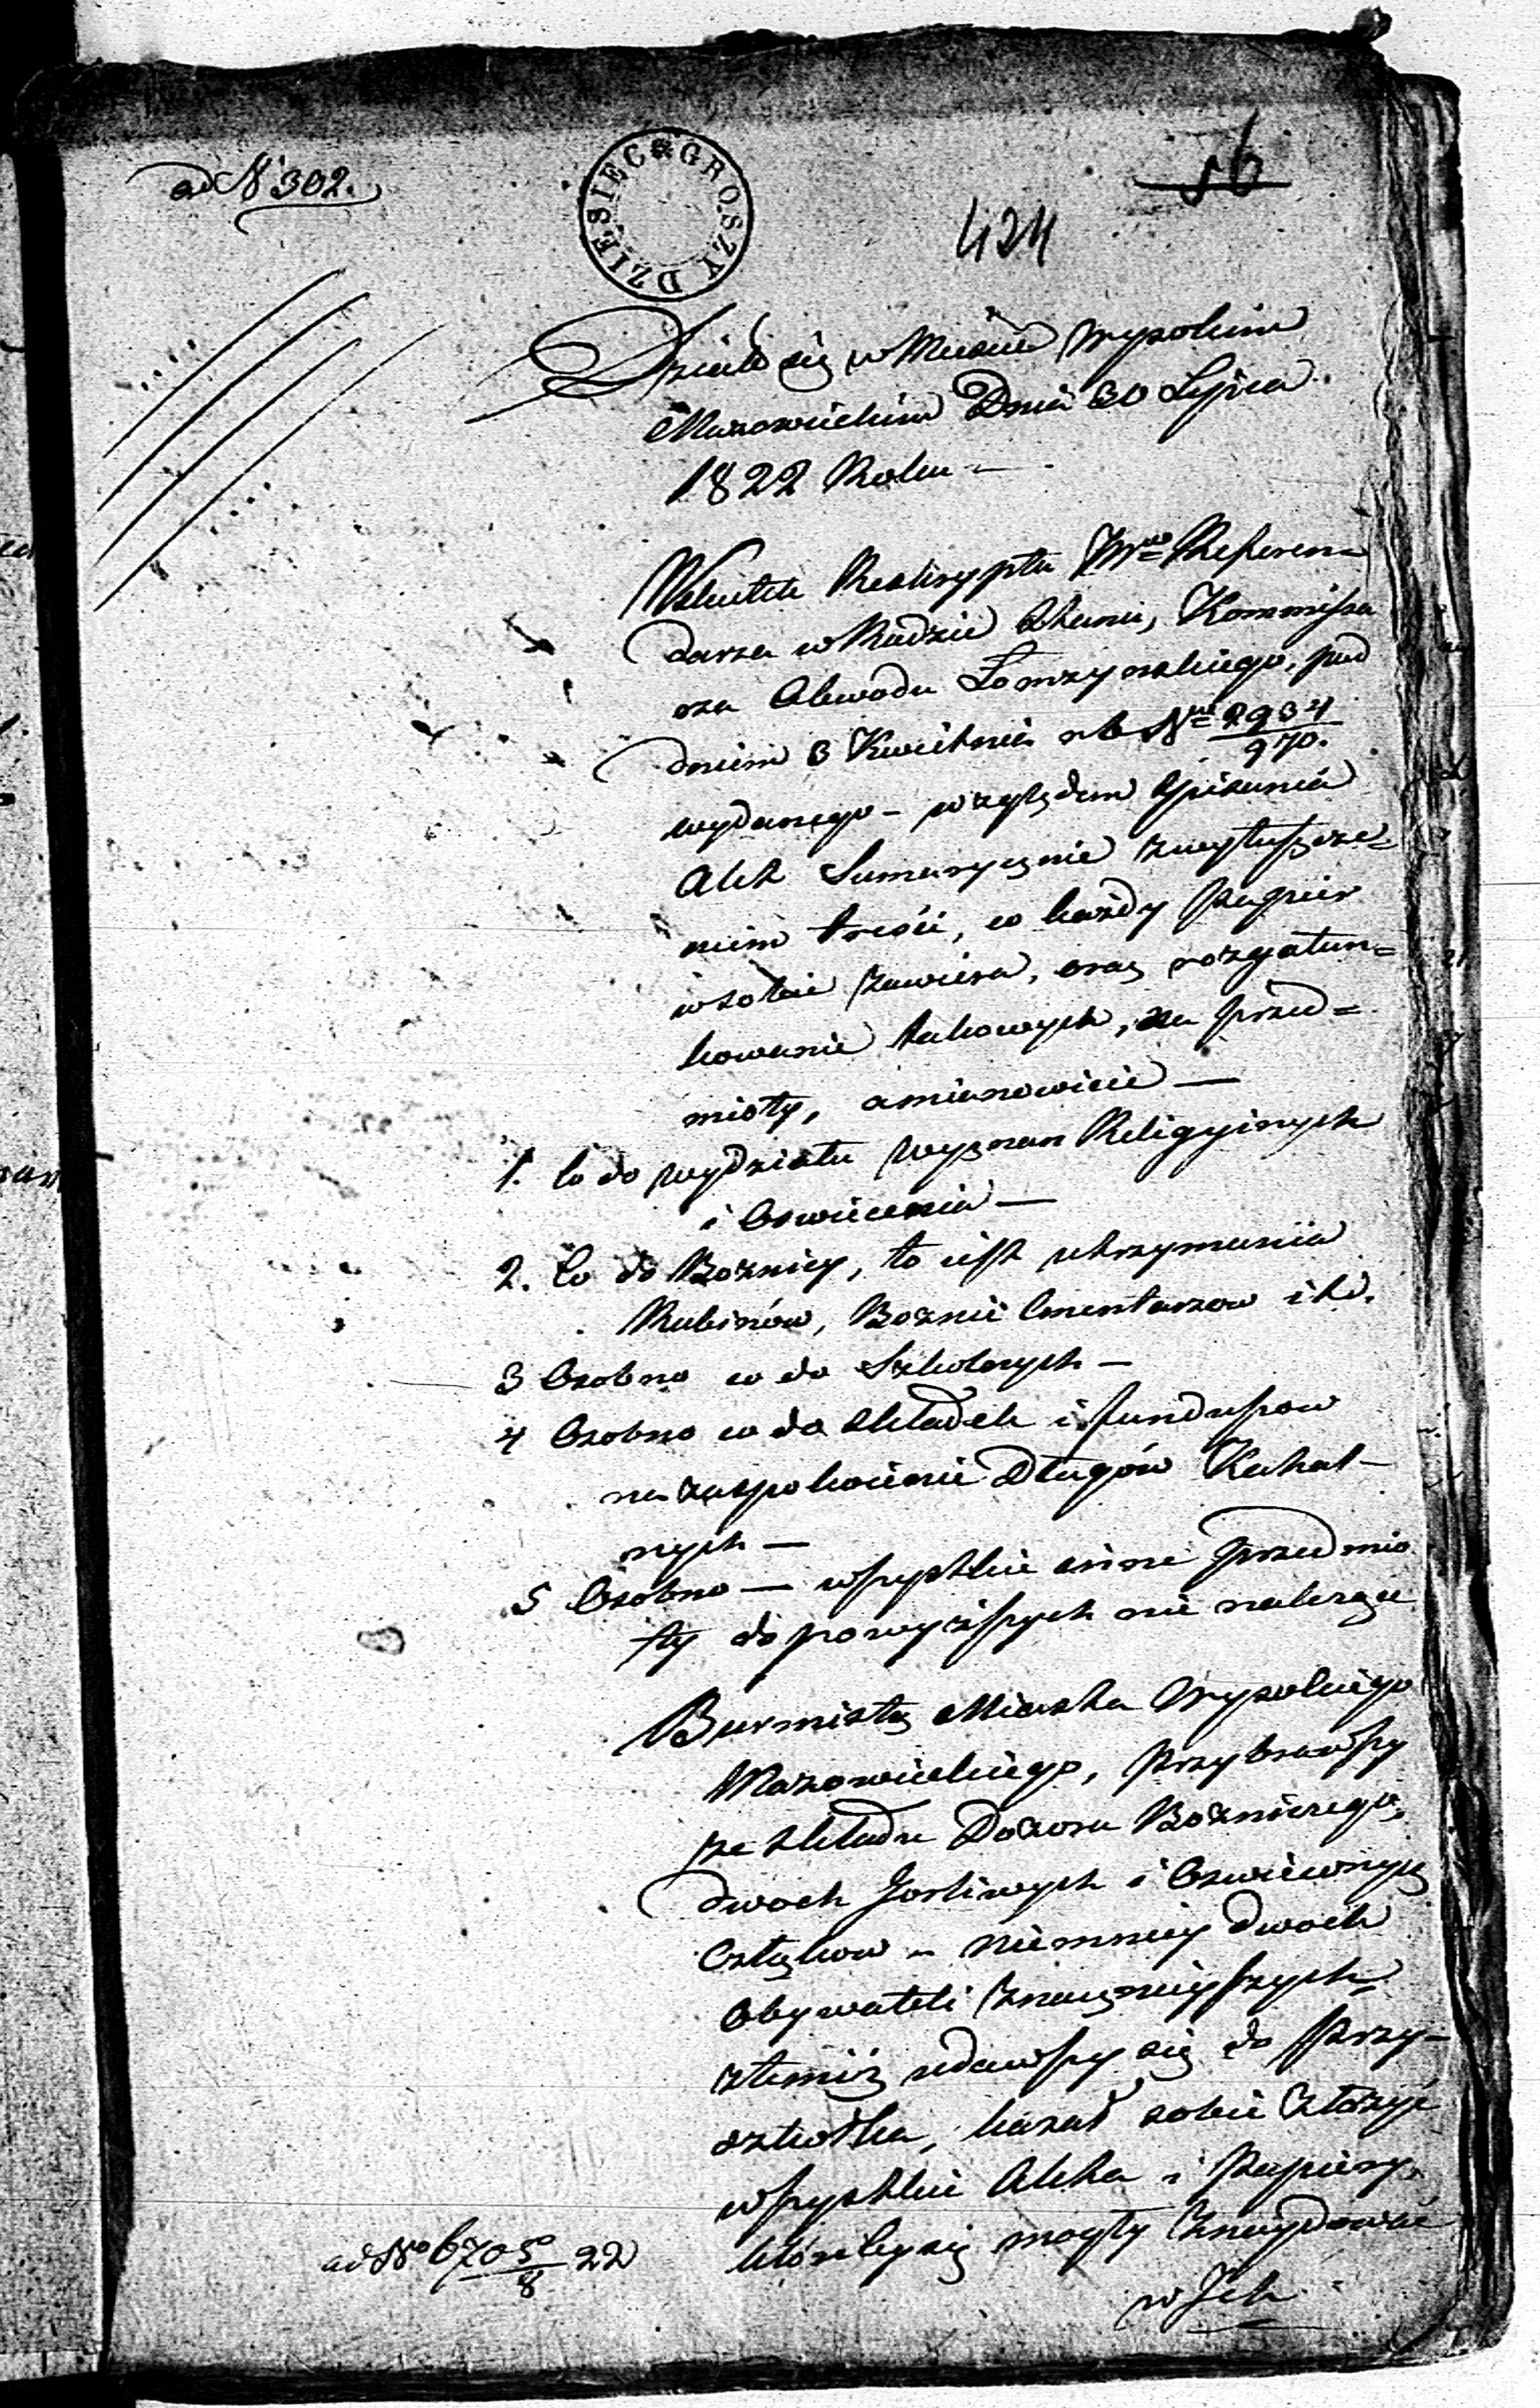 ad N 302.
DZIESIEC GROSZY
56
424
Działo się w Mieście Wysokim
Mazowieckim Dnia 30 Lipca
1822 Roku –
Wskutek Reskryptu JWgo Referen
darza w Radzie Stanu, Kommissa
rza Obwodu Łomzynskiego, pod
dniem 3 Kwietnia r b Nro 2934/970.
wydanego – względem spisania
Akt Sumarycznie z wytuszcze=
niem treści, co każdy Papier
w sobie zawiera, oraz rozgatun=
kowanie takowych, na przed=
mioty, a mianowicie —
1. Co do wydziału Wyznan Religyinych
i Oswiecenia —
2. Co do Bożnicy, to iest utrzymania
Rabinów, Boznic Cmentarzow i t d.
3 Osobno co do Szkolnych –
4 Osobno co do składek i funduszow
na zaspokoienie Długów Kahal–
nych —
5 Osobno — wszystkie inne przedmio
ty do powyższych nie należące
Burmistrz Miasta Wysokiego
Mazowieckiego, przybrawszy
ze składu Dozoru Bożniczego,
dwoch Gorliwych i Oswieconych
Członkow – niemniey dwoch
Obywateli znacznieyszych
z temiż udawszy się do Przy–
szkołka, kazał sobie złożyć
wszystkie Akta i Papiery,
któreby się mogły znaydować
w Ich
ad No 6705/8 22